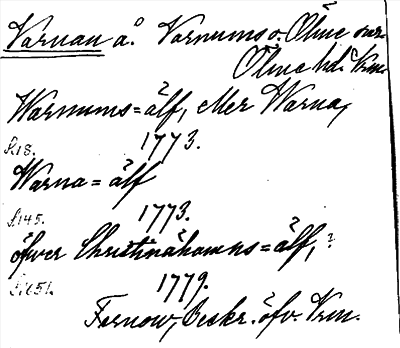 Varnan å. Varnums o. Ölme snr
Ölme hd. Vrm.
Warnums=älf, eller Warna,
S.18. 1773.
Warna=älf
S.145. 1773.
öfver Christinæhamns=älf,?
S.651. 1779.
Fernow, Beskr. öfv. Vrm.